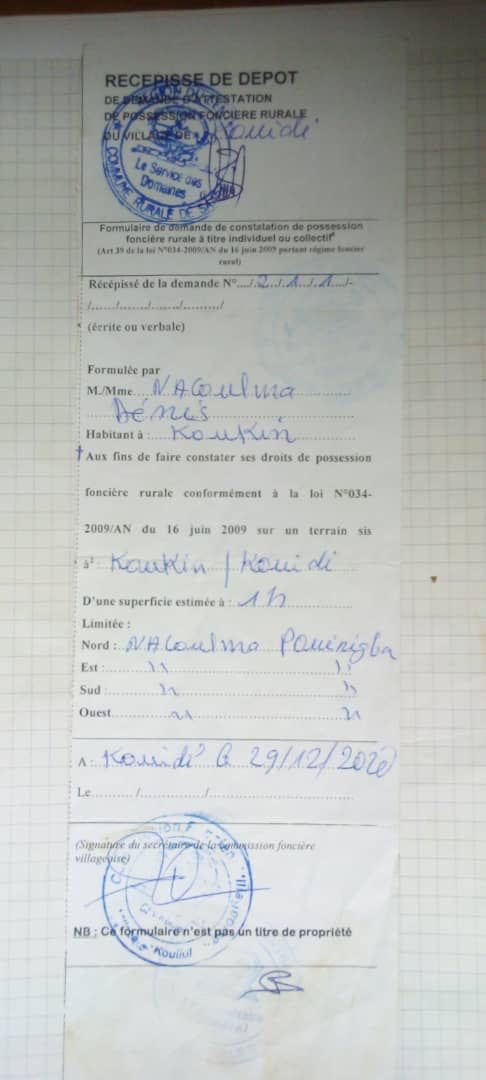 RECEPISSE DE DEPOT
DE DEMANDE D'ATTESTATION
DE POSSESSION FONCIERE RURALE
DU VILLAGE DE Kouidi
Le Service des
Domaines
COMMUNE RURALE DE
Formulaire de demande de constatation de possession
foncière rurale à titre individuel ou collectif
(Art 39 de la loi N°034-2009/AN du 16 juin 2009 portant régime foncier
rural)
Récépissé de la demande N°..../.2../.1../.1.../-
/....../......../......./........./
(écrite ou verbale)
Formulée par
M./Mme NACoulma
Dénis
Habitant à : Koukin
Aux fins de faire constater ses droits de possession
foncière rurale conformément à la loi N°034-
2009/AN du 16 juin 2009 sur un terrain sis
à² : Koukin / Kouidi
D'une superficie estimée à : 1h
Limitée :
Nord : NACoulma
Est : " "
Sud : " "
Ouest " "
A : Kouidi le 29/12/
Le ......../........../
(Signature du secrétaire de la commission foncière
villageoise)
NB : Ce formulaire n'est pas un titre de propriété